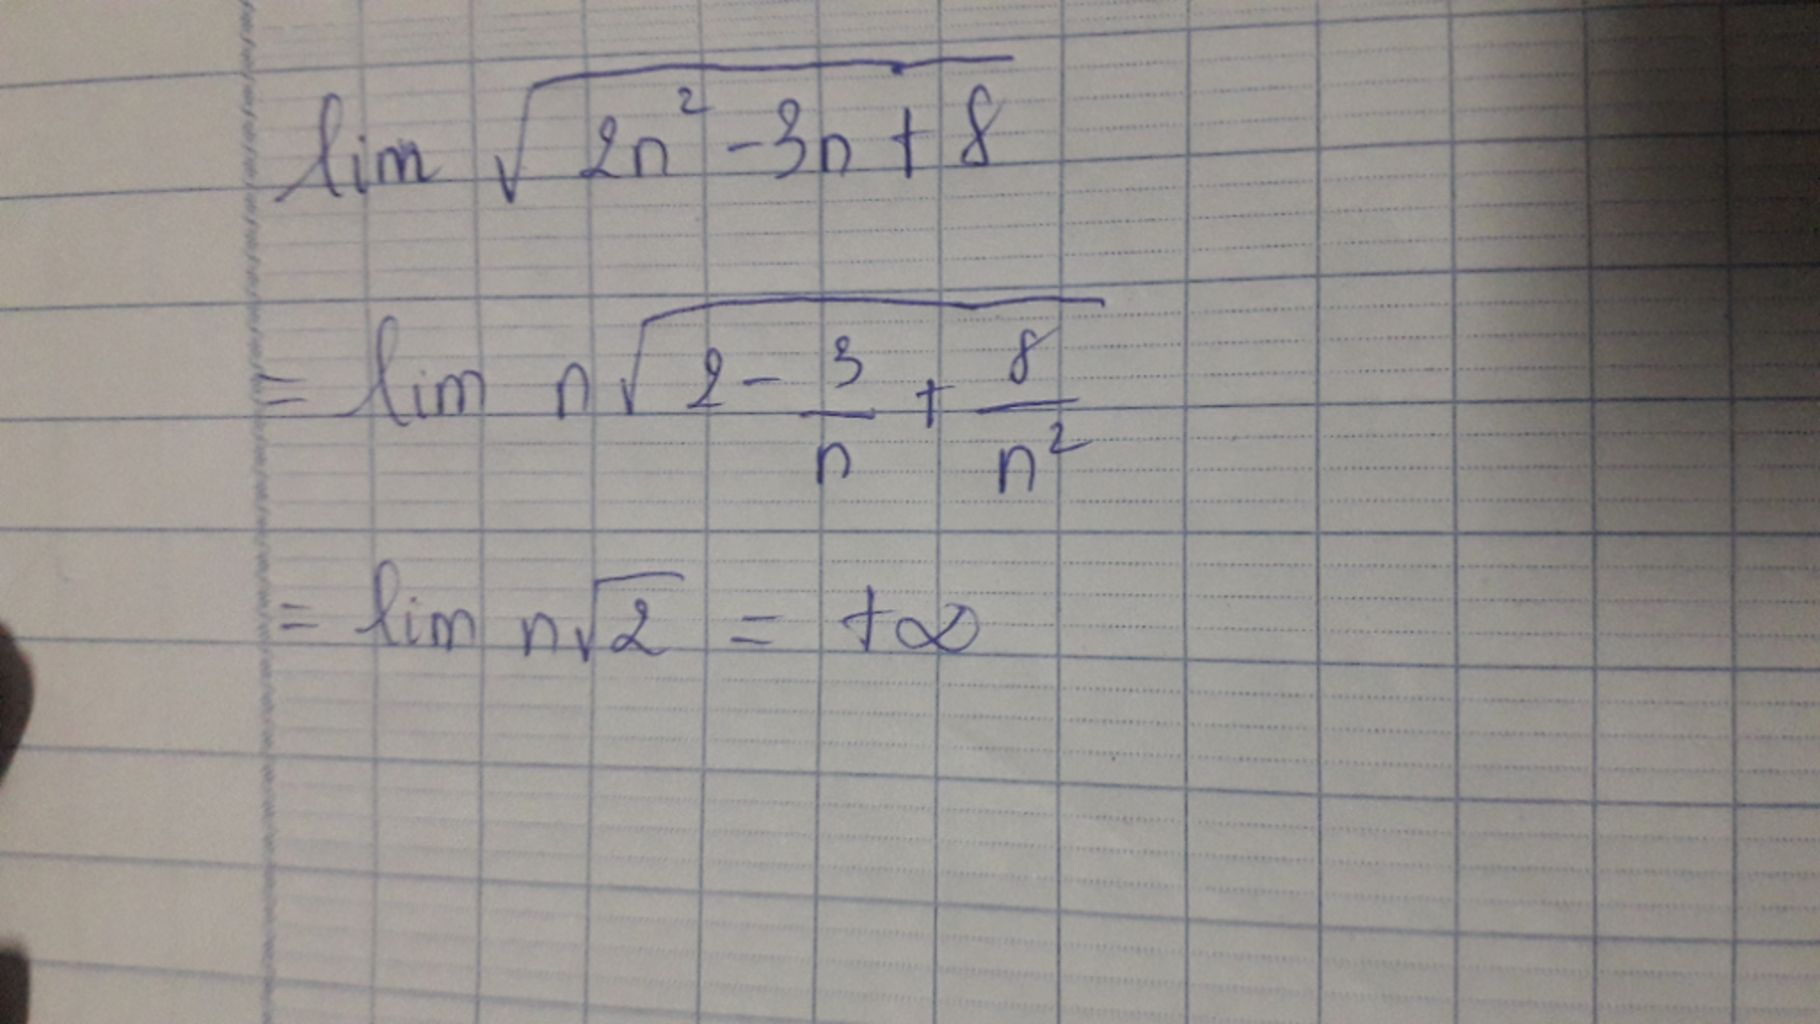 lim √(2n² - 3n + 8)
= lim n√(2 - 3/n + 8/n²)
= lim n√2 = +∞